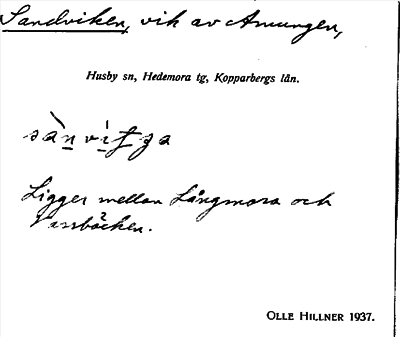 Sandviken, vik av Amungen,
Husby sn, Hedemora tg, Kopparbergs län.
Ligger mellan Långmora och
OLLE HILLNER 1937.